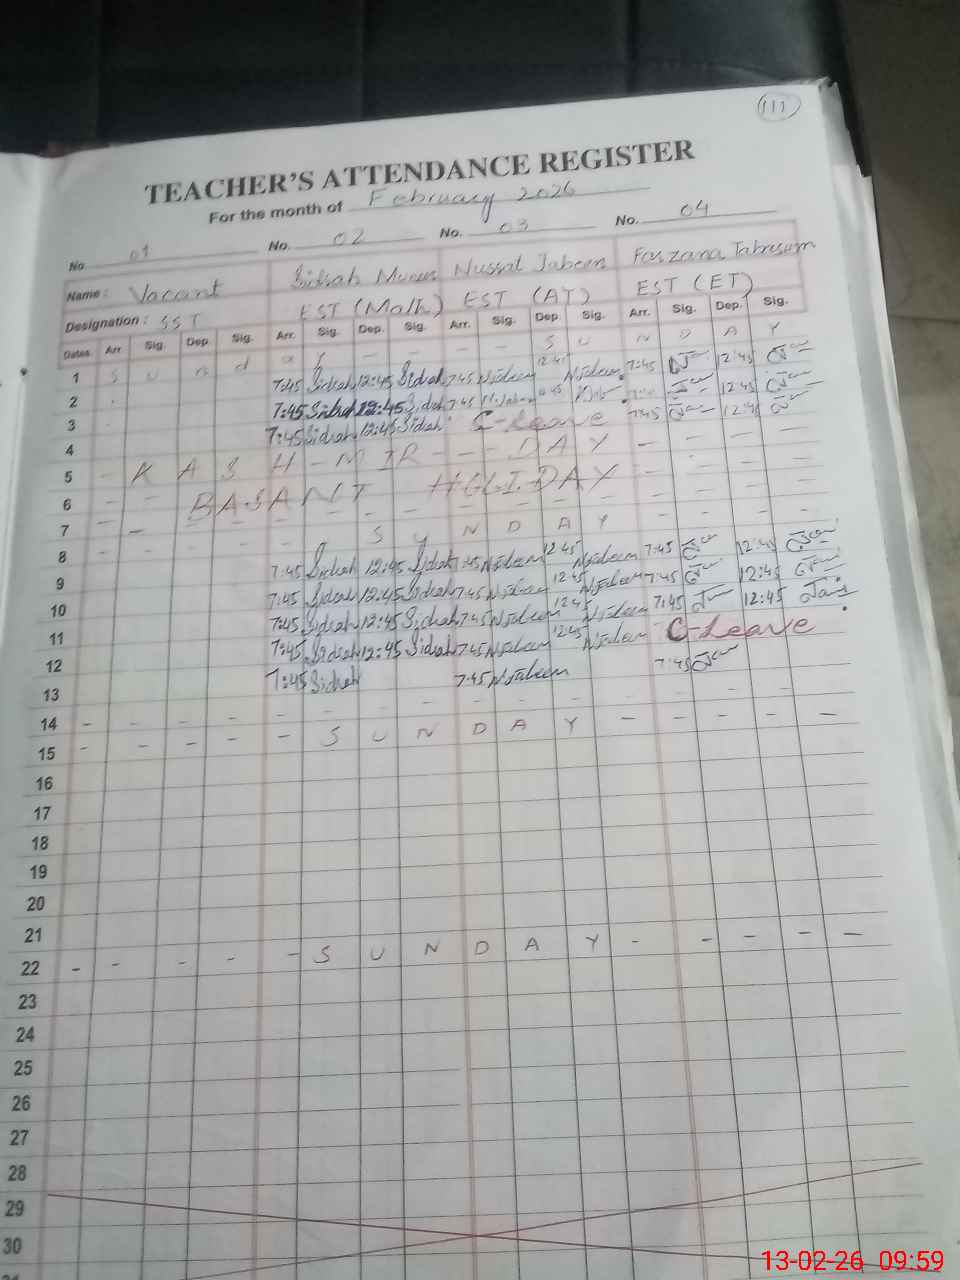 111
TEACHER'S ATTENDANCE REGISTER
For the month of February 2026
No 01 No. 02 No. 03 No. 04
Name: Vacant Sidrah Nusrat Jabeen Farzana Tabassum
Designation: SST EST (Math) EST (AT) EST (ET)
Dates Arr. Sig. Dep. Sig. Arr. Sig. Dep. Sig. Arr. Sig. Dep. Sig. Arr. Sig. Dep. Sig.
1 S u n d a y - - - - S U N D A Y
2 7:45 Sidrah 12:45 Sidrah 7:45 NJabeen 12:45 NJabeen 7:45 12:45
3 7:45 Sidrah 12:45 Sidrah 7:45 12:45 12:45
4 7:45 Sidrah 12:45 Sidrah C-Leave 7:45 12:45
5 - K A S H - M I R - - - D A Y - - - - -
6 - - BASANT HOLIDAY
7 - - - - - - - - - - - -
8 - - - - - S U N D A Y
9 7:45 Sidrah 12:45 Sidrah 7:45 NJabeen 12:45 NJabeen 7:45 12:45
10 7:45 Sidrah 12:45 Sidrah 7:45 NJabeen 12:45 NJabeen 7:45 12:45
11 7:45 Sidrah 12:45 Sidrah 7:45 NJabeen 12:45 NJabeen 7:45 12:45
12 7:45 Sidrah 12:45 Sidrah 7:45 NJabeen 12:45 NJabeen C-Leave
13 7:45 Sidrah 7:45 NJabeen 7:45
14 - - - - - - - - - - - -
15 - - - - - S U N D A Y - - - - -
16
17
18
19
20
21
22 - - - - - S U N D A Y - - - - -
23
24
25
26
27
28
29
30
13-02-26 09:59